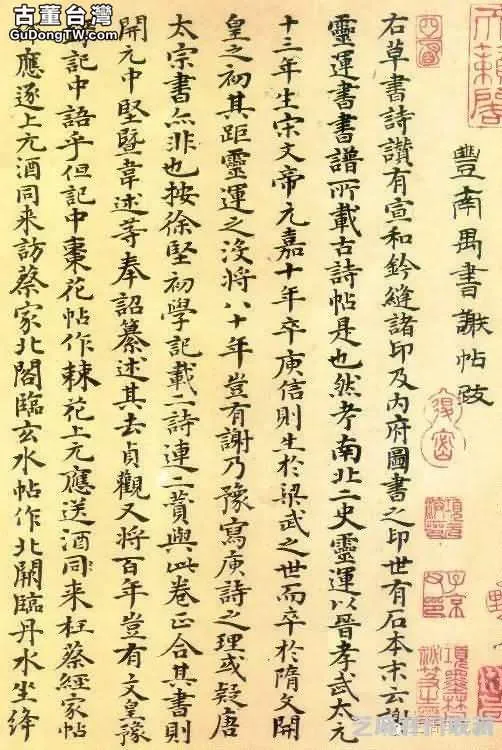 古董台灣
GuDongTW.com
天籟閣
豐南禺書謝帖跋
右草書詩讚有宣和鈐縫諸印及內府圖書之印世有石本末云謝
靈運書書譜所載古詩帖是也然考南北二史靈運以晉孝武太元
十三年生宋文帝元嘉十年卒庾信則生於梁武之世而卒於隋文開
皇之初其距靈運之沒將八十年豈有謝乃豫寫庾詩之理或疑唐
太宗書亦非也按徐堅初學記載二詩連二贊與此卷正合其書則
開元中堅暨韋述等奉詔纂述其去貞觀又將百年豈有文皇豫
記中語乎但記中棗花帖作棘花上元應送酒同来枉蔡經家帖
應逐上元酒同来訪蔡家北閣臨玄水帖作北闕臨丹水坐絳